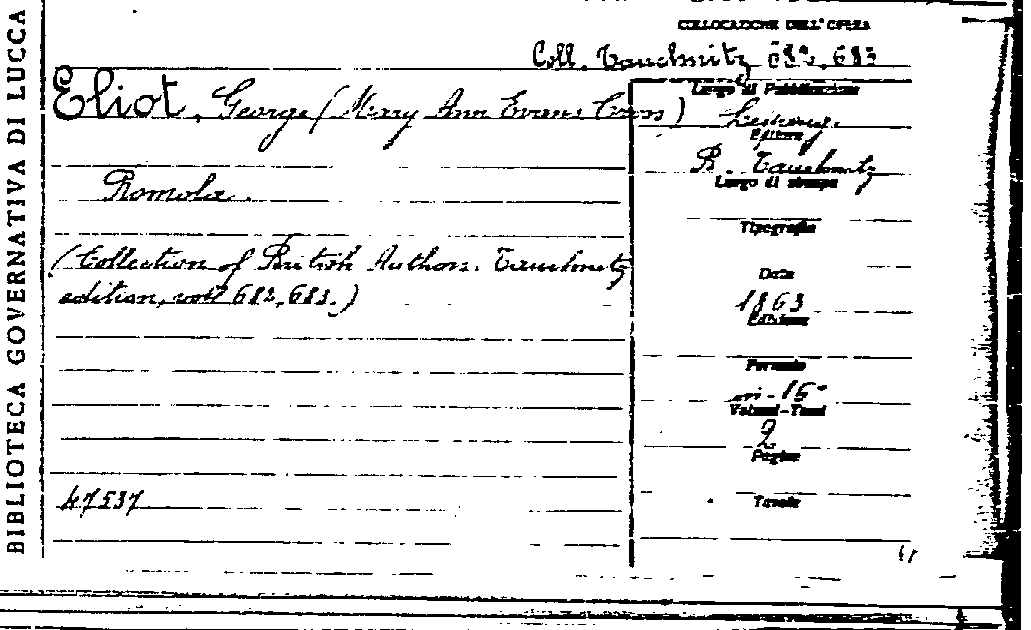 BIBLIOTECA GOVERNATIVA DI LUCCA
COLLOCAZIONE DELL'OPERA
Coll. Tauchnitz 682, 683
Eliot, George (Mary Ann Evans Cross)
Romola.
(Collection of British Authors. Tauchnitz
edition, voll 682, 683.)
47537
Luogo di Pubblicazione
Editore
B. Tauchnitz
Luogo di stampa
Tipografia
Data
1863
Edizione
Formato
in-16°
Volumi-Tomi
2
Pagine
Tavole